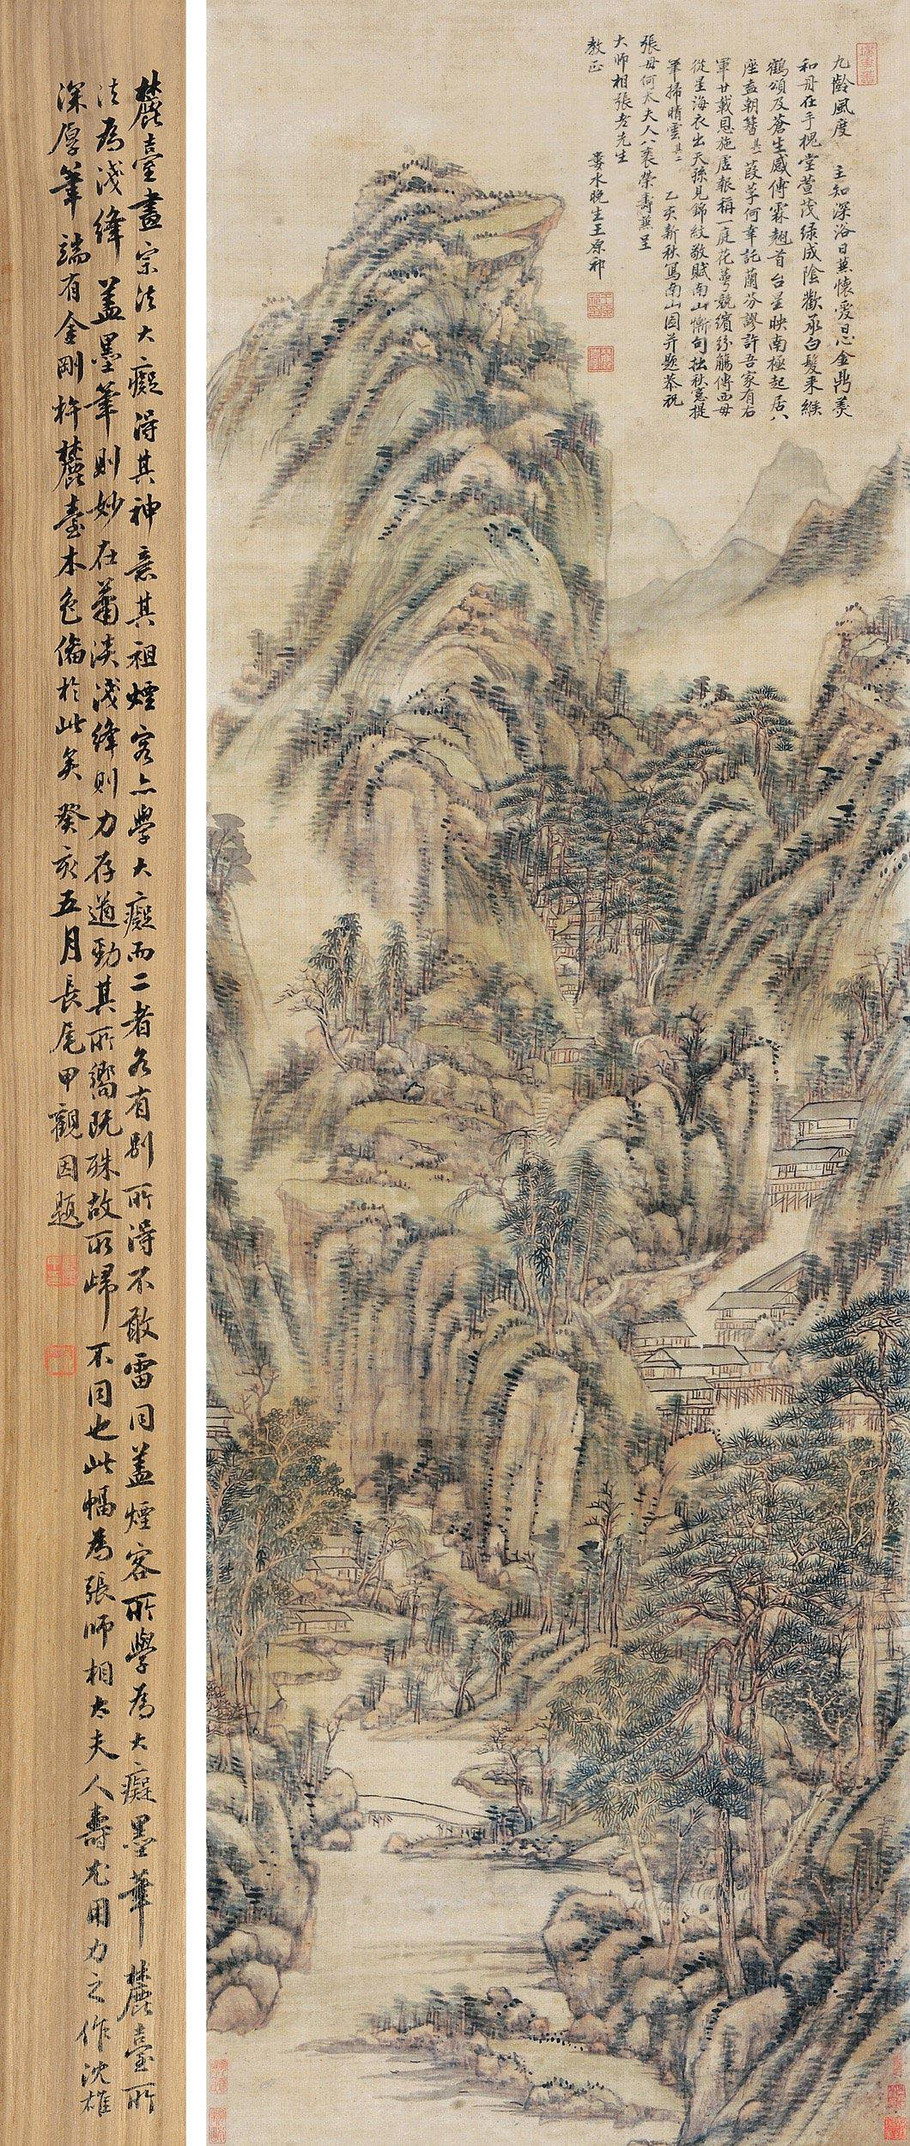 九齡風度
主知深浴日兼懷愛日思金鼎羹
和丹在手槐堂萱茂綠成陰歡承白髮來緱
鶴頌及蒼生感傅霖翹首台星映南極起居八
座盍朝簪其一葭莩何幸託蘭芬謬許吾家有右
軍廿載恩施虛報稱一庭花萼競繽紛觴傳西母
從星海衣出天孫見錦紋敬賦南山慚句拙秋窓提
筆掃晴雲其二
乙亥新秋寫南山圖并題恭祝
張母何太夫人八袠榮壽兼呈
大師相張老先生
教正
婁水晚生王原祁
麓臺畫宗法大癡得其神意其祖煙客亦學大癡而二者各有別所得不敢雷同蓋煙客所學為大癡墨筆麓臺所
法為淺絳蓋墨筆則妙在蕭淡淺絳則力存遒勁其所嚮既殊故所歸不同也此幅為張師相太夫人壽尤用力之作沈雄
深厚筆端有金剛杵麓臺本色備於此矣癸亥五月長尾甲觀因題